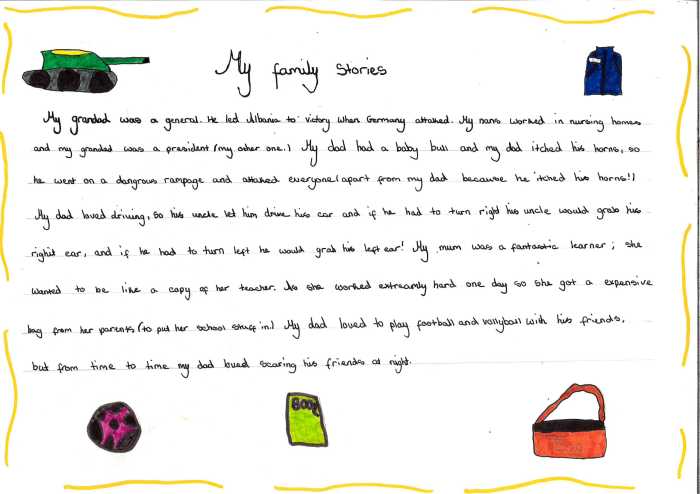 My family Stories
My grandad was a general. He led Albania to victory when Germany attaked. My nans worked in nursing homes
and my grandad was a president (my other one.) My dad had a baby bull and my dad itched his horns, so
he went on a dangrous rampage and attaked everyone (apart from my dad because he itched his horns!)
My dad loved driving, so his uncle let him drive his car and if he had to turn right his uncle would grab his
right ear, and if he had to turn left he would grab his left ear! My mum was a fantastic learner; she
wanted to be like a copy of her teacher. As she worked extreamly hard one day so she got a expensive
bag from her parents (to put her school stuff in.) My dad loved to play football and vollyball with his friends,
but from time to time my dad loved scaring his friends at night.
BOOK